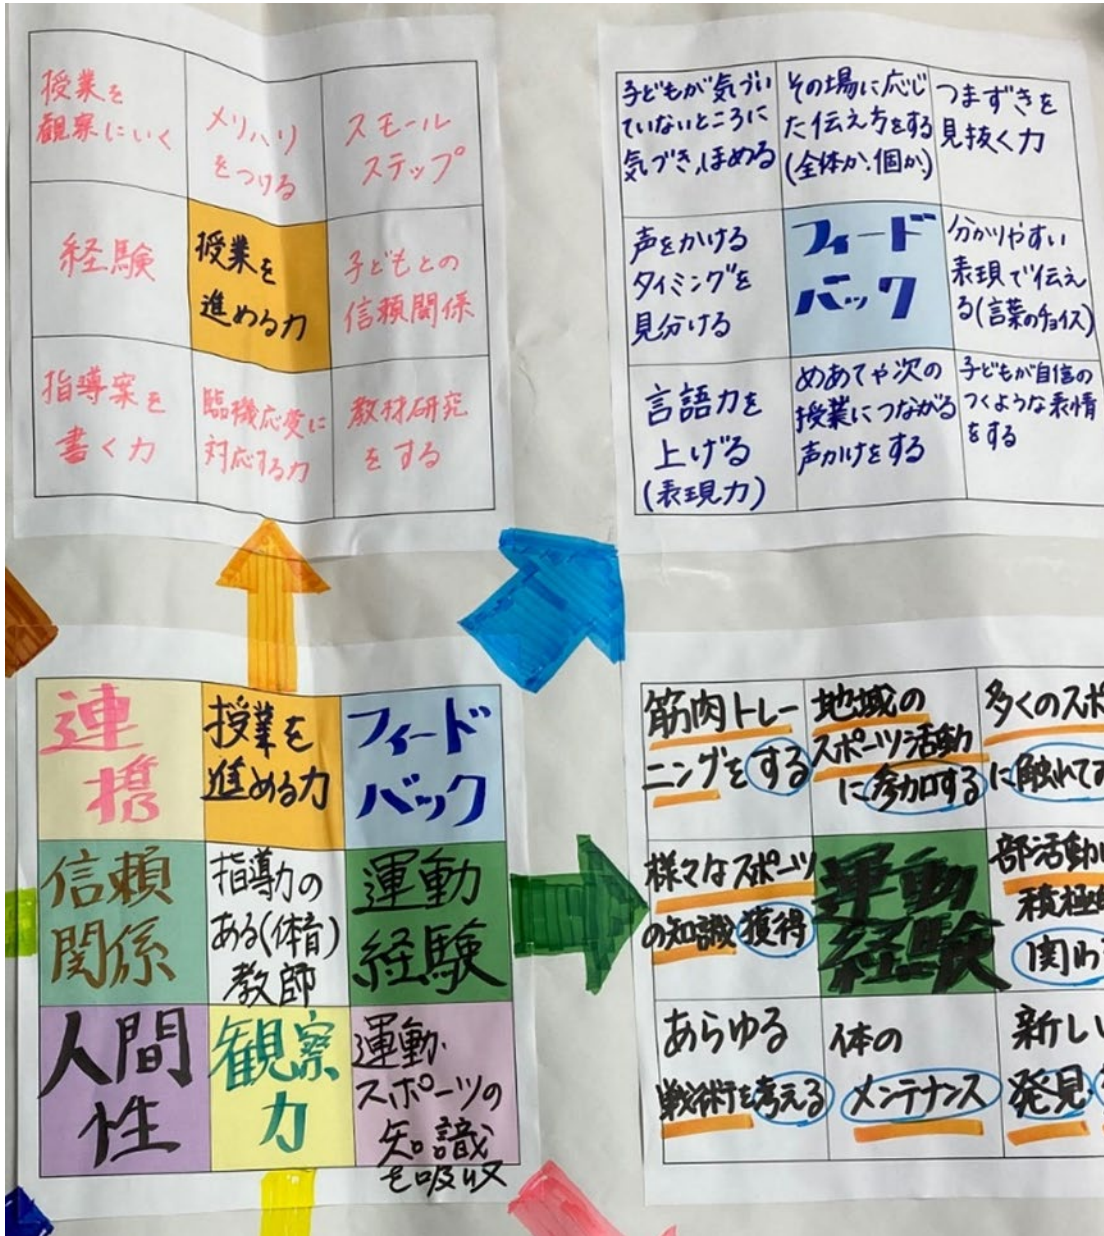 授業を
観察にいく
メリハリ
をつける
スモール
ステップ
経験
授業を
進める力
子どもとの
信頼関係
指導案を
書く力
臨機応変に
対応する力
教材研究
をする
子どもが気づい
ていないところに
気づき、ほめる
その場に応じ
た伝え方をする
(全体か、個か)
つまずきを
見抜く力
声をかける
タイミングを
見分ける
フィード
バック
分かりやすい
表現で伝え
る(言葉のチョイス)
言語力を
上げる
(表現力)
めあてや次の
授業につながる
声かけをする
子どもが自信の
つくような表情
をする
連
携
授業を
進める力
フィード
バック
信頼
関係
指導力の
ある(体育)
教師
運動
経験
人間
性
観察
力
運動・
スポーツの
知識
を吸収
筋肉トレー
ニングをする
地域の
スポーツ活動
に参加する
多くのスポ
に触れて
様々なスポーツ
の知識獲得
運動
経験
部活動
積極
関わ
あらゆる
戦術を考える
体の
メンテナンス
新しい
発見